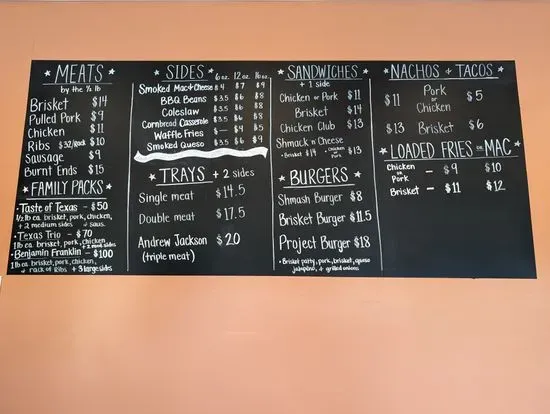 * MEATS *
by the ½ lb
Brisket $14
Pulled Pork $9
Chicken $11
Ribs $32/rack $10
Sausage $9
Burnt Ends $15
* FAMILY PACKS *
• Taste of Texas - $50
½ lb ea. brisket, pork, chicken,
+ 2 medium sides + saus.
• Texas Trio - $70
1 lb ea. brisket, pork, chicken
+ 2 med sides
• Benjamin Franklin - $100
1 lb ea. brisket, pork, chicken,
+ rack of Ribs + 3 large sides
* SIDES * 6 oz. 12 oz. 16 oz.
Smoked Mac & Cheese $4 $7 $9
BBQ Beans $3.5 $6 $8
Coleslaw $3.5 $6 $8
Cornbread Casserole $3.5 $6 $8
Waffle Fries $- $4 $5
Smoked Queso $3.5 $6 $9
* TRAYS * + 2 sides
Single meat $14.5
Double meat $17.5
Andrew Jackson $20
(triple meat)
* SANDWICHES *
+ 1 side
Chicken or Pork $11
Brisket $14
Chicken Club $13
Shmack n Cheese
• Brisket $14 • Chicken or Pork $13
* BURGERS *
Shmash Burger $8
Brisket Burger $11.5
Project Burger $18
• Brisket patty, pork, brisket, queso
jalapeño, + grilled onions
* NACHOS + TACOS *
$11 Pork or Chicken $5
$13 Brisket $6
* LOADED FRIES or MAC *
Chicken or Pork - $9 $10
Brisket - $11 $12